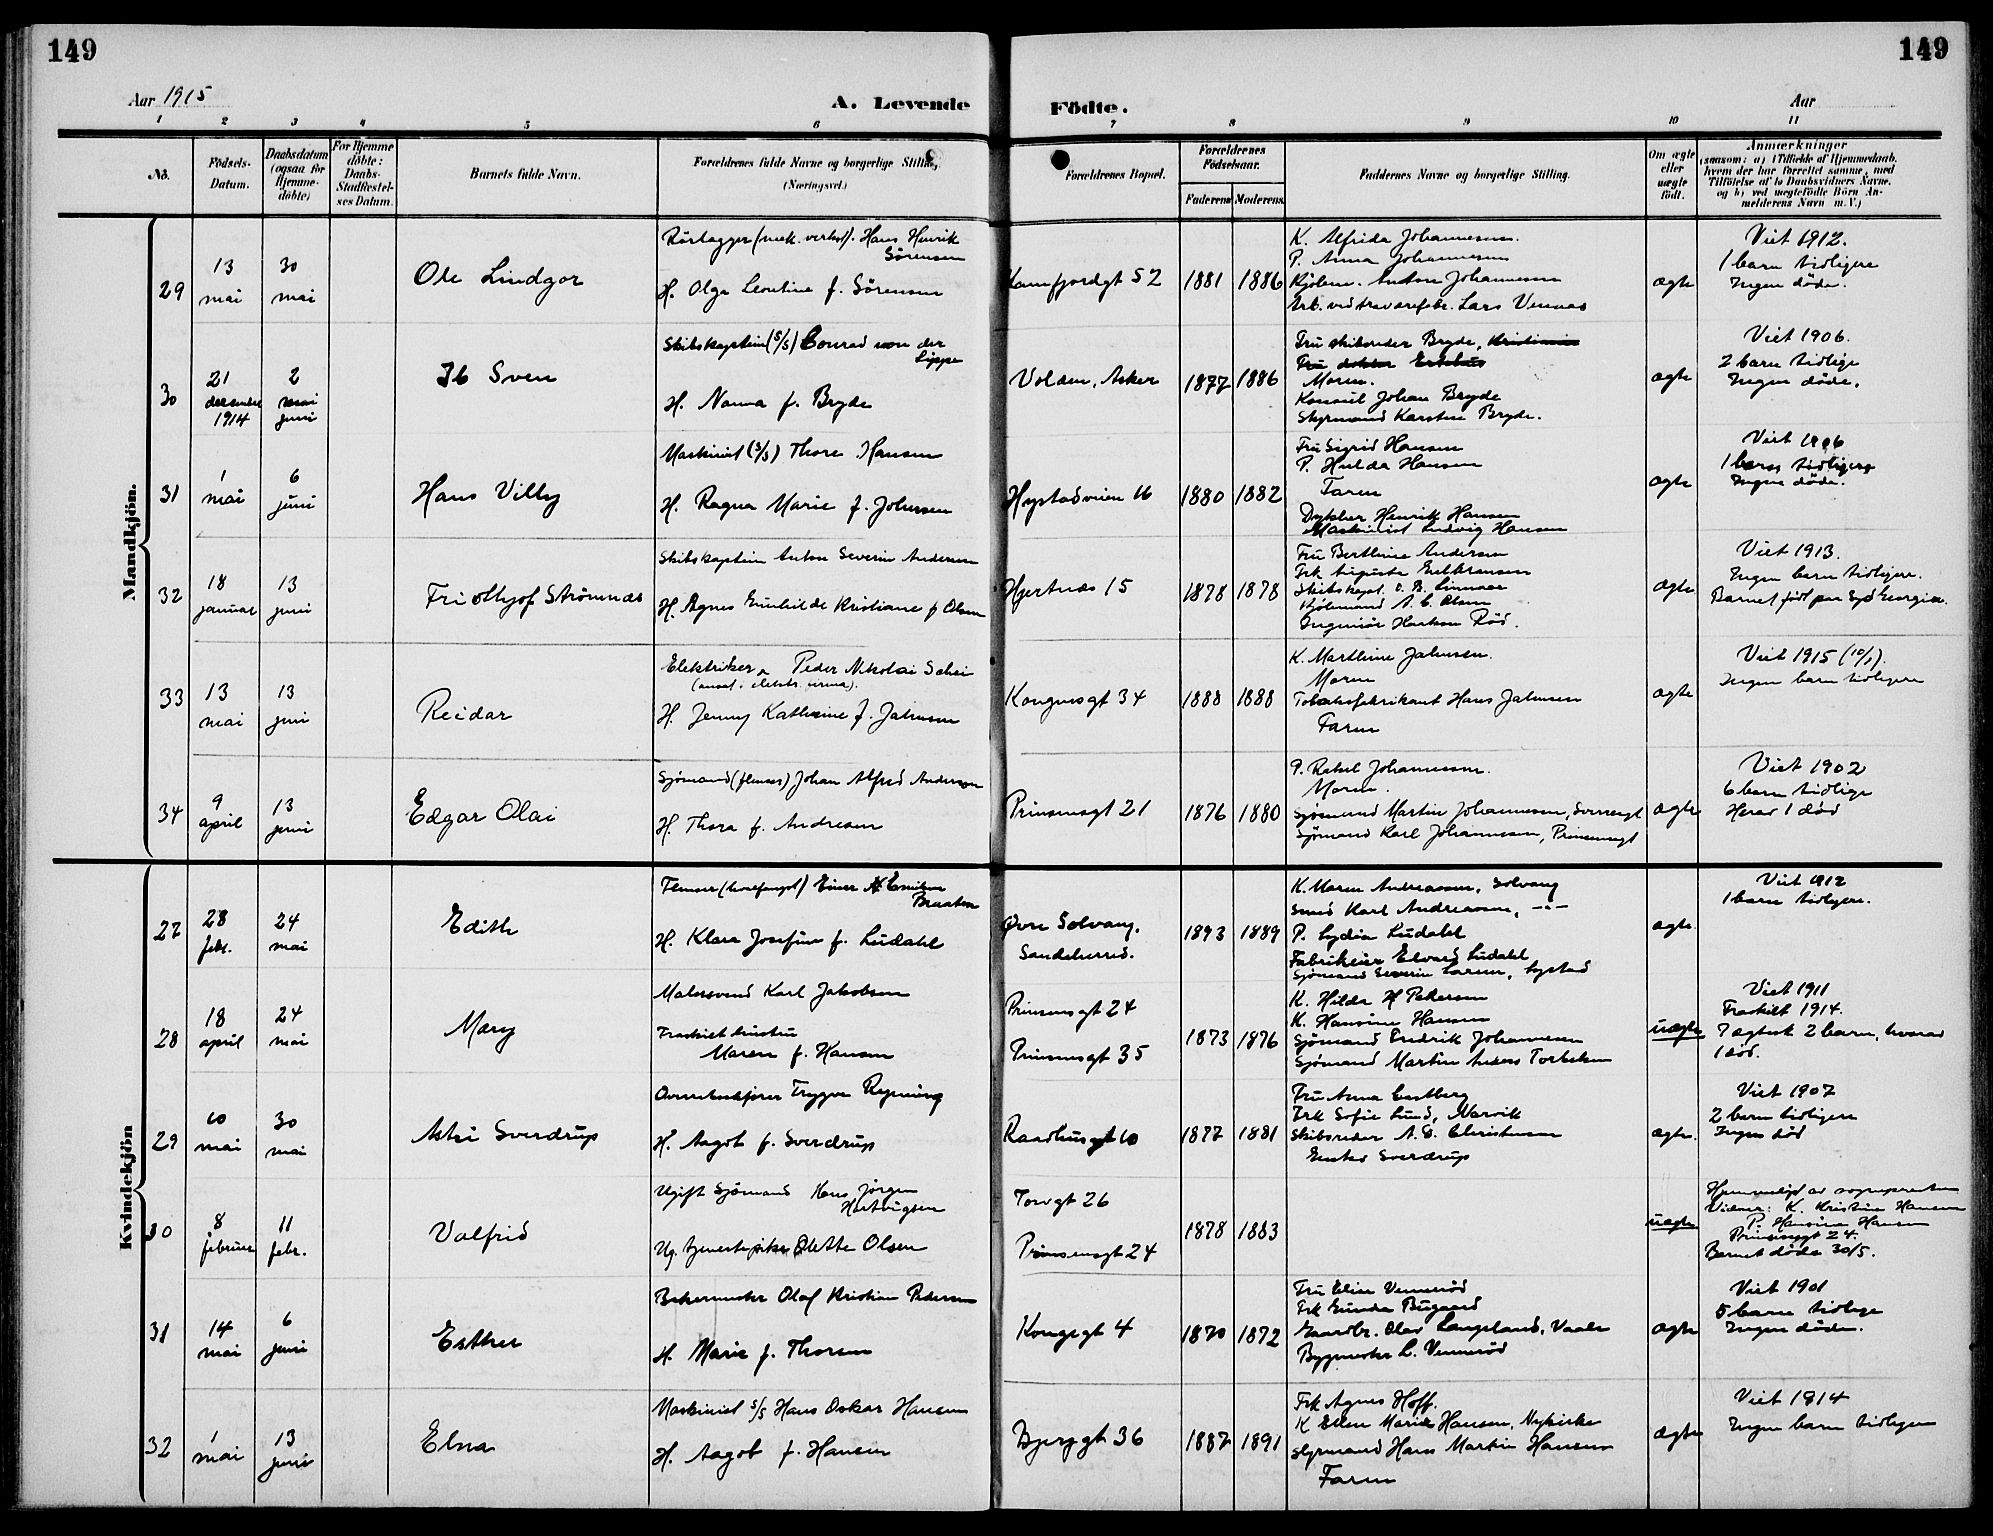 149
149
Aar 1915
A. Levende
Födte.
Aar
1 2 3 4 5 6 7 8 9 10 11
No.
Födsels-Datum.
Daabsdatum (ogsaa for Hjemmedöbte)
For Hjemmedöbte: Daabs-Stadfæstelses Datum.
Barnets fulde Navn.
Forældrenes fulde Navne og borgerlige Stilling
(Næringsvei.)
Forældrenes Bopæl.
Forældrenes Födselsaar.
Faderens Moderens
Faddernes Navne og borgerlige Stilling.
Om ægte eller uægte födt.
Anmærkninger
(saasom: a) i Tilfælde af Hjemmedaab, hvem der har forrettet samme, med Tilföielse af to Daabsvidners Navne, og b) ved uægtefödte Börn Anmelderens Navn m. V.)
Mandkjön.
29
13 mai
30 mai
Ole Lindgor
Rörlægger (mek. verkst). Hans Henrik Sörensen
H. Olga Leontine f. Sörensen
Kamfjordgt 52
1881 1886
K. Alfrida Johannessen.
P. Anna Johannessen
Anton Johannessen
Arb. ved trævarefabr. Lars Vennes
ægte
Viet 1912.
1 barn tidligere
Ingen döde.
30
21 december 1914
2 mai juni
Ib Sven
Skibskaptein (S/S) Conrad von der Lippe
H. Nanna f. Bryde
Volden, Asker
1877 1886
Fru skibsreder Bryde, Kristiania
Fru doktor
Moren.
Konsul Johan Bryde
Styrmand Karsten Bryde.
ægte
Viet 1906.
2 barn tidlige
Ingen döde.
31
1 mai
6 juni
Hans Villy
Maskinist (S/S) Thore Hansen
H. Ragna Marie f. Johnsen
Hystadveien 16
1880 1882
Fru Sigrid Hansen
P. Hulda Hansen
Faren
Dykker Henrik Hansen
Maskinist Ludvig Hansen
ægte
Viet 1906
1 barn tidligere
Ingen döde.
32
18 januar
13 juni
Fridthjof Strömnes
Skibskaptein Anton Severin Andersen
H. Agnes Gunhilde Kristiane f Olsen
Hjertnes 15
1878 1878
Fru Bertline Andersen
Frk Augusta Gulbransen
Skibskapt. O. B.
A. C. Olsen
Ingeniör Haakon Röd.
ægte
Viet 1913.
Ingen barn tidligere.
Barnet født paa Syd Georgia.
33
13 mai
13 juni
Reidar
Elektriker Peder Nikolai Schei
(ansat i elektr. firma).
H. Jenny Kathrine f. Jahnsen
Kongensgt 34
1888 1888
K. Marthine Jahnsen.
Moren
Tobaksfabrikant Hans Jahnsen
Faren
ægte
Viet 1915 (10/1).
Ingen barn tidligere
34
9 april
13 juni
Edgar Olai
Sjömand (flenser) Johan Alfred Andersen
H. Thora f. Andresen
Prinsensgt 21
1876 1880
P. Rakel Johannessen.
Moren.
Sjömand Martin Johannessen, Sverresgt
Sjömand Karl Johannessen, Prinsensgt
ægte
Viet 1902
6 barn tidlige
Herav 1 död
Kvindekjön
27
28 febr.
24 mai
Edith
Flenser (hvalfangst) Einar Emilsen Braaten
H. Klara Josefine f. Ludahl
Övre Solvang, Sandeherred.
1893 1889
K. Maren Andreassen, Solvang
Smed Karl Andreassen, -"-
P. Lydia Ludahl
Fabrikeier Edvard Ludahl
Sjömand Severin Larsen, Lystad
ægte.
Viet 1912
1 barn tidligere.
28
18 april
24 mai
Mary
Malersvend Karl Jakobsen
Fraskilt hustru
Maren f. Hansen
Prinsensgt 24
Prinsensgt 35
1873 1876
K. Hilda H Pettersen
K. Hansine Hansen
Sjömand Endrik Johannessen
Sjömand Martin Anders Torkelsen
uægte
Viet 1911
Fraskilt 1914.
I ægtesk 2 barn, hvorav
1 död.
29
10 mai
30 mai
Astri Sverdrup
Overretssakförer Trygve Rygning
H. Aagot f. Sverdrup
Raadhusgt 10
1877 1881
Fru Anna Castberg
Frk Sofie Lund, Narvik
Skibsreder A. E. Christensen
Gustav Sverdrup
ægte.
Viet 1907
2 barn tidligere
Ingen död
30
8 februar
11 febr.
Valfrid
Ugift Sjömand Hans Jörgen Hartvigsen
Ug. tjenestepike Olette Olsen
Torvgt 26
Prinsensgt 24
1878 1883
uægte
Hjemmedöpt av sognepresten
Vidner: K. Kristine Hansen
P. Hansine Hansen
Prinsensgt 24.
Barnet döde 30/5.
31
14 mai
6 juni
Esther
Bakermester Olaf Kristian Pedersen
H. Marie f. Thorsen
Kongsgt 4
1870 1872
Fru Elise Venneröd
Frk Gunda Bugaard
Gaardbr. Olav Langeland, Vaale
Bygmester L. Venneröd
ægte
Viet 1901
5 barn tidlige
Ingen döde.
32
1 mai
13 juni
Elna
Maskinist S/S Hans Oskar Hansen
H. Aagot f. Hansen
Bjerggt 36
1887 1891
Frk Agnes Hoff.
K Ellen Marie Hansen, Nykirke
Styrmand Hans Martin Hansen
Faren
ægte
Viet 1914
Ingen barn tidligere